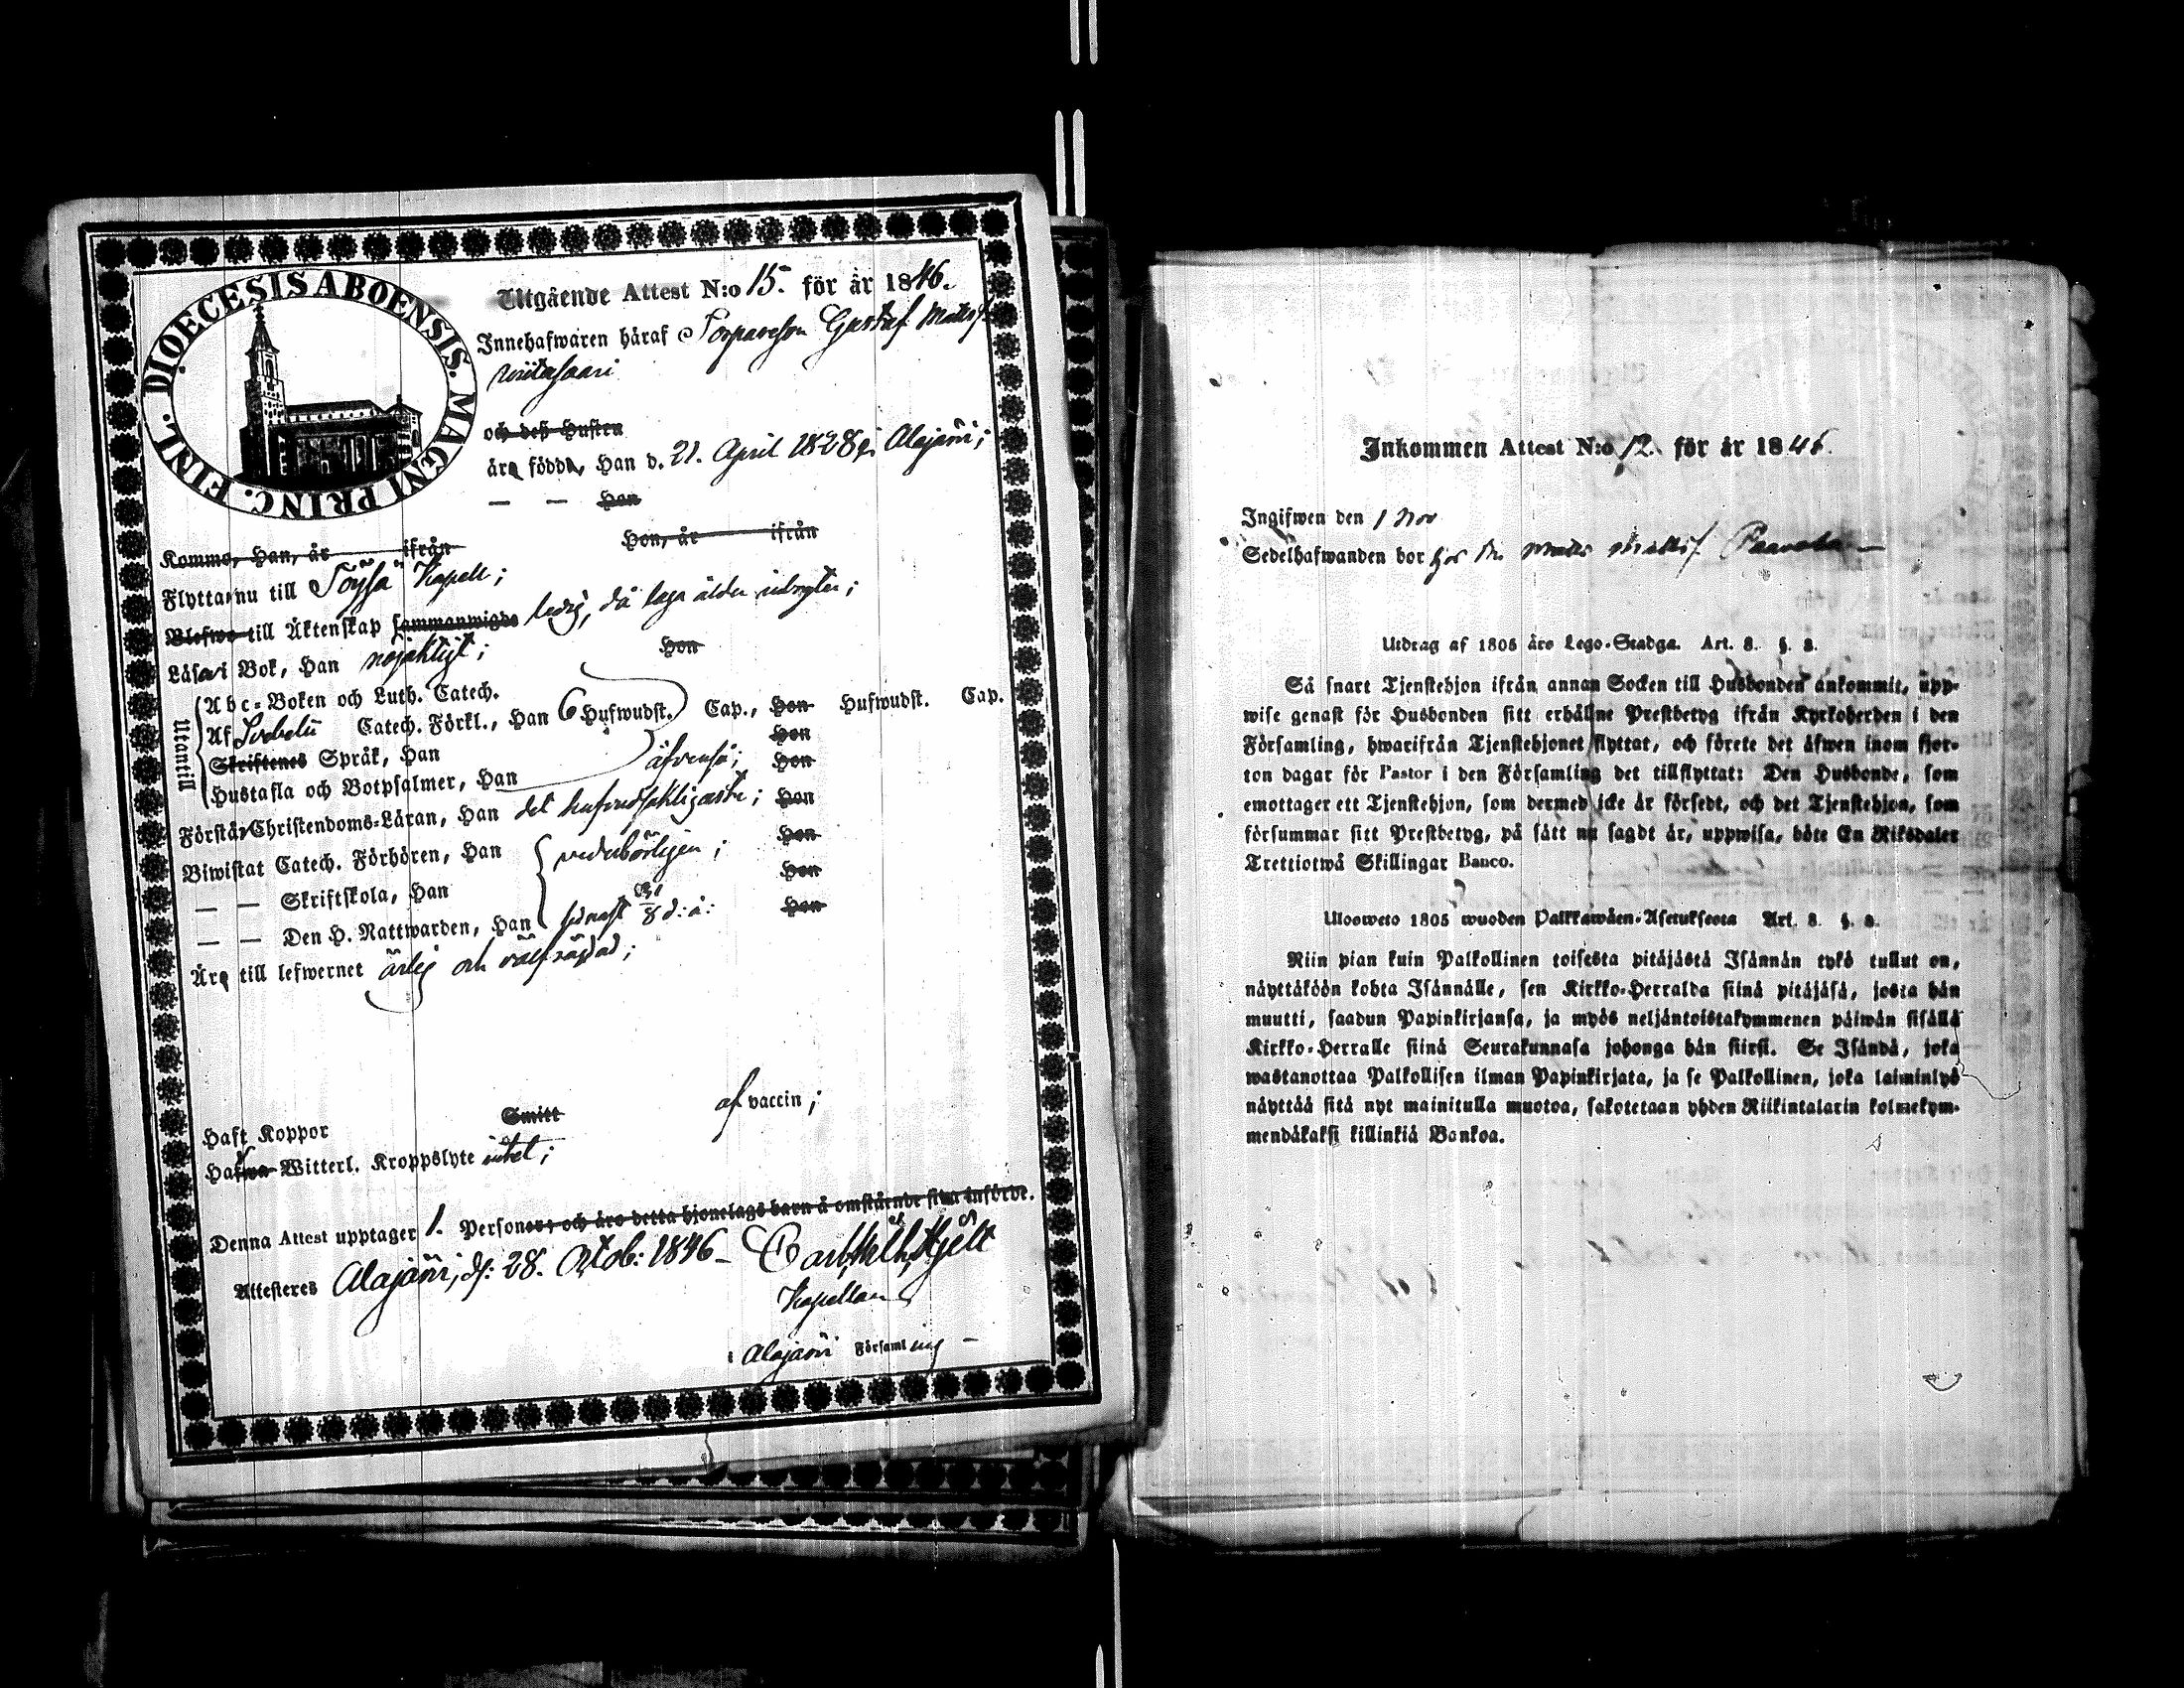 DIOECESIS ABOENSIS. MAGNI PRINC. FINL.
Utgående Attest N:o 15. för år 1846.
Innehafwaren häraf Torpareson Gustaf Matts
och deß Hustru
äro födda, Han d. 21. April 1828 i Alajärvi;
— — Hon
Komne, Han, år ifrån Hon, år ifrån
Flytta nu till Töysä Kapell;
Blefwo till Äktenskap sammanwigde ledig, då laga ålder inbryter;
Läsa i Bok, Han nöjaktigt; Hon
Utantill
Abc-Boken och Luth. Catech.
Af Svebelii Catech. Förkl., Han 6 Hufwudst. Cap., Hon Hufwudst. Cap.
Skriftenes Språk, Han Hon
Hustafla och Botpsalmer, Han äfvenså; Hon
Förstår Christendoms-Läran, Han det hufvudsakligaste; Hon
Biwistat Catech. Förhören, Han vederbörligen; Hon
— — Skriftskola, Han Hon
— — Den H. Nattwarden, Han senast 8 d: å: Hon
Äro till lefwernet ärlig och välfrägdad;
Haft Koppor Smitt af vaccin;
Hafwa Witterl. Kroppslyte intet;
Denna Attest upptager 1. Personer, och äro detta hjonelags barn å omstående sida införde.
Attesteres Alajärvi, d: 28. Octob: 1846 — Carl Wilh. Hjelt
Kapellan
i Alajärvi Församling —
Inkommen Attest N:o 12. för år 1846.
Ingifwen den 1 Nov
Sedelhafwanden bor hos Matts. Paavola —
Utdrag af 1805 års Lego-Stadga. Art. 8. §. 8.
Så snart Tjenstehjon ifrån annan Socken till Husbonden ankommit, upp-
wise genast för Husbonden sitt erhållne Prestbetyg ifrån Kyrkoherden i den
Församling, hwarifrån Tjenstehjonet flyttat, och förete det äfwen inom fjor-
ton dagar för Pastor i den Församling det tillflyttat: Den Husbonde, som
emottager ett Tjenstehjon, som dermed icke är försedt, och det Tjenstehjon, som
försummar sitt Prestbetyg, på sätt nu sagdt är, uppwisa, böte En Riksdaler
Trettiotwå Skillingar Banco.
Ulosweto 1805 wuoden Palkkawäen-Asetuksesta Art. 8. §. 8.
Niin pian kuin Palkollinen toisesta pitäjästä Isännän tykö tullut on,
näyttäköön kohta Isännälle, sen Kirkko-Herralda siinä pitäjäsä, josta hän
muutti, saadun Papinkirjansa, ja myös neljäntoistakymmenen päiwän sisällä
Kirkko-Herralle siinä Seurakunnasa johonga hän siirsi. Se Isändä, joka
wastanottaa Palkollisen ilman Papinkirjata, ja se Palkollinen, joka laiminlyö
näyttää sitä nyt mainitulla muotoa, sakotetaan yhden Riikintalarin kolmekym-
mendäkaksi killinkiä Bankoa.